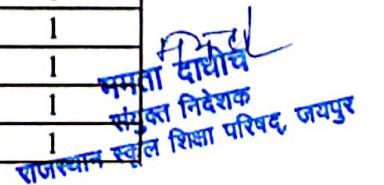 1
1
1
1
1
ममता दाधीच
संयुक्त निदेशक
राजस्थान स्कूल शिक्षा परिषद्, जयपुर